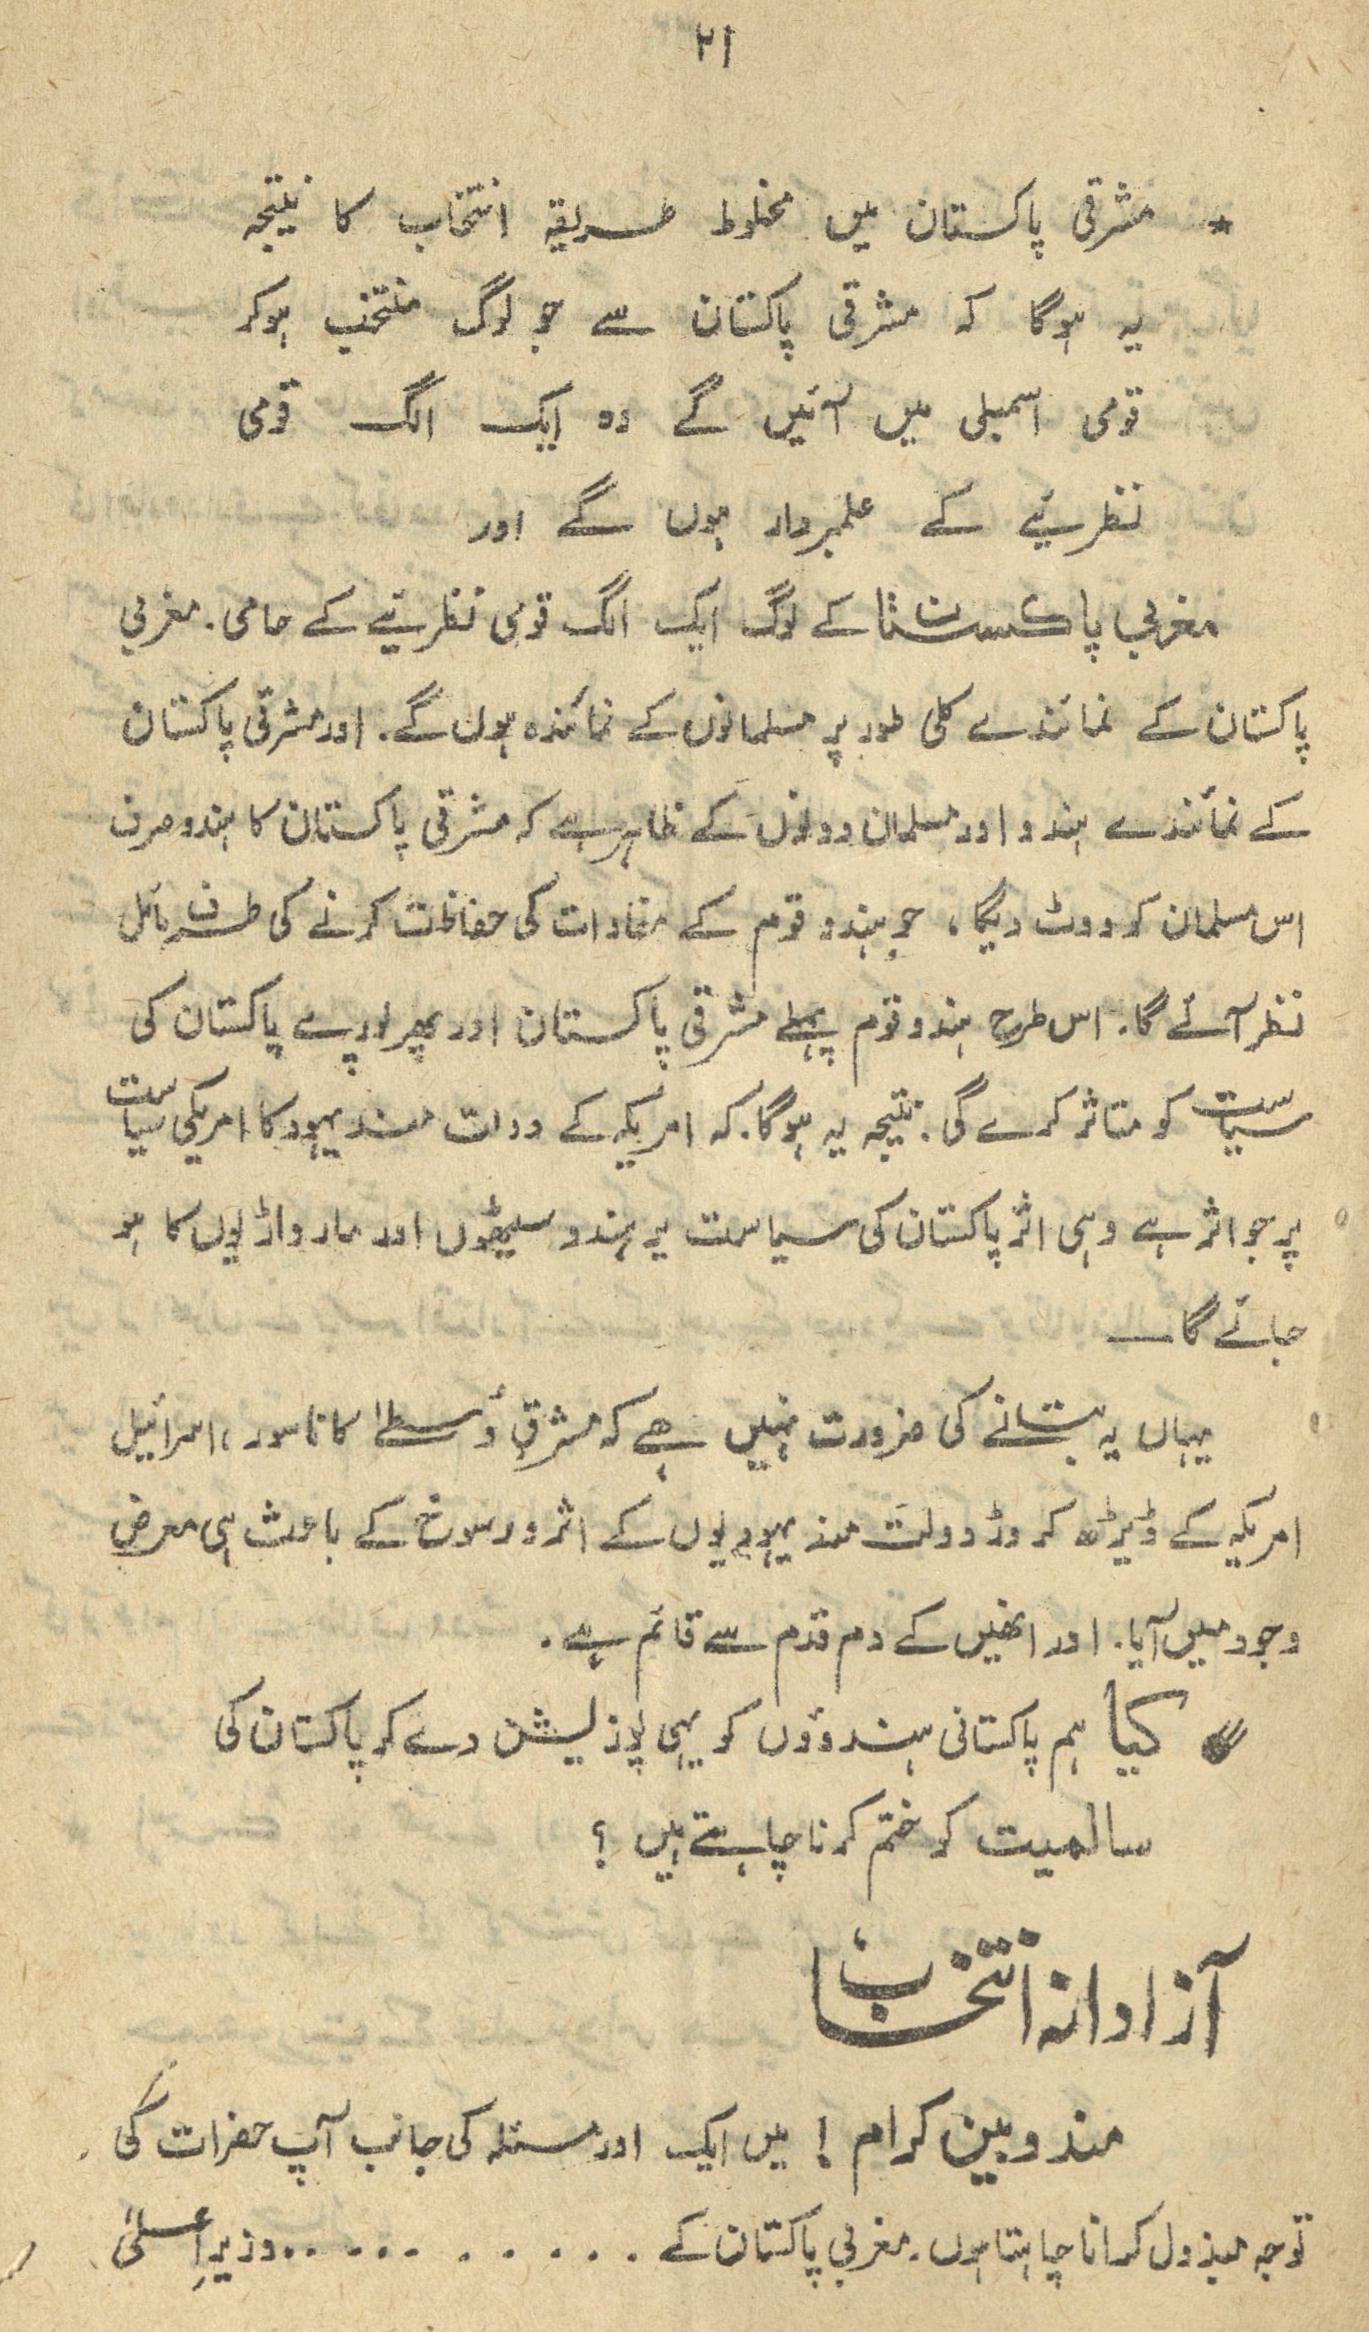 ۲۱
* مشرقی پاکستان میں مخلوط طریقۂ انتخاب کا نیتجہ
یہ ہوگا کہ مشرقی پاکستان سے جو لوگ منتخب ہوکر
قومی اسمبلی میں آئیں گے وہ ایک الگ قومی
نظریئے کے علمبردار ہوں گے اور
مغربی پاکستان کے لوگ ایک الگ قومی نظریئے کے حامی۔ مغربی
پاکستان کے نمائندے کلی طور پر مسلمانوں کے نمائندہ ہوں گے۔ اور مشرقی پاکستان
کے نمائندے ہندو اور مسلمان دونوں کے ظاہر ہے کہ مشرقی پاکستان کا ہندو صرف
اس مسلمان کو ووٹ دیگا، جو ہندو قوم کے مفادات کی حفاظت کرنے کی طرف مائل
نظر آئے گا۔ اس طرح ہندو قوم پہلے مشرقی پاکستان اور پھر پورے پاکستان کی
سیاست کو متاثر کرے گی۔ نتیجہ یہ ہوگا۔ کہ امریکہ کے دولت مند یہود کا امریکی سیاست
پر جو اثر ہے وہی اثر پاکستان کی سیاست پر ہندو سیٹھوں اور مارواڑیوں کا ہو
جائے گا۔
یہاں یہ بتانے کی ضرورت نہیں ہے کہ مشرقِ وُسطےٰ کا ناسور، اسرائیل
امریکہ کے ڈیڑھ کروڑ دولت مند یہودیوں کے اثر و رسوخ کے باعث ہی معرض
وجود میں آیا۔ اور انھیں کے دم قدم سے قائم ہے۔
کیا ہم پاکستانی ہندوؤں کو یہی پوزلیشن دے کر پاکستان کی
سالمیت کو ختم کرنا چاہتے ہیں ؟
آزادانہ انتخاب
مندوبین کرام ! میں ایک اور مسئلہ کی جانب آپ حضرات کی
توجہ مبذول کرانا چاہتا ہوں۔ مغربی پاکستان کے . . . . . . . . . . . وزیرِ اعلیٰ